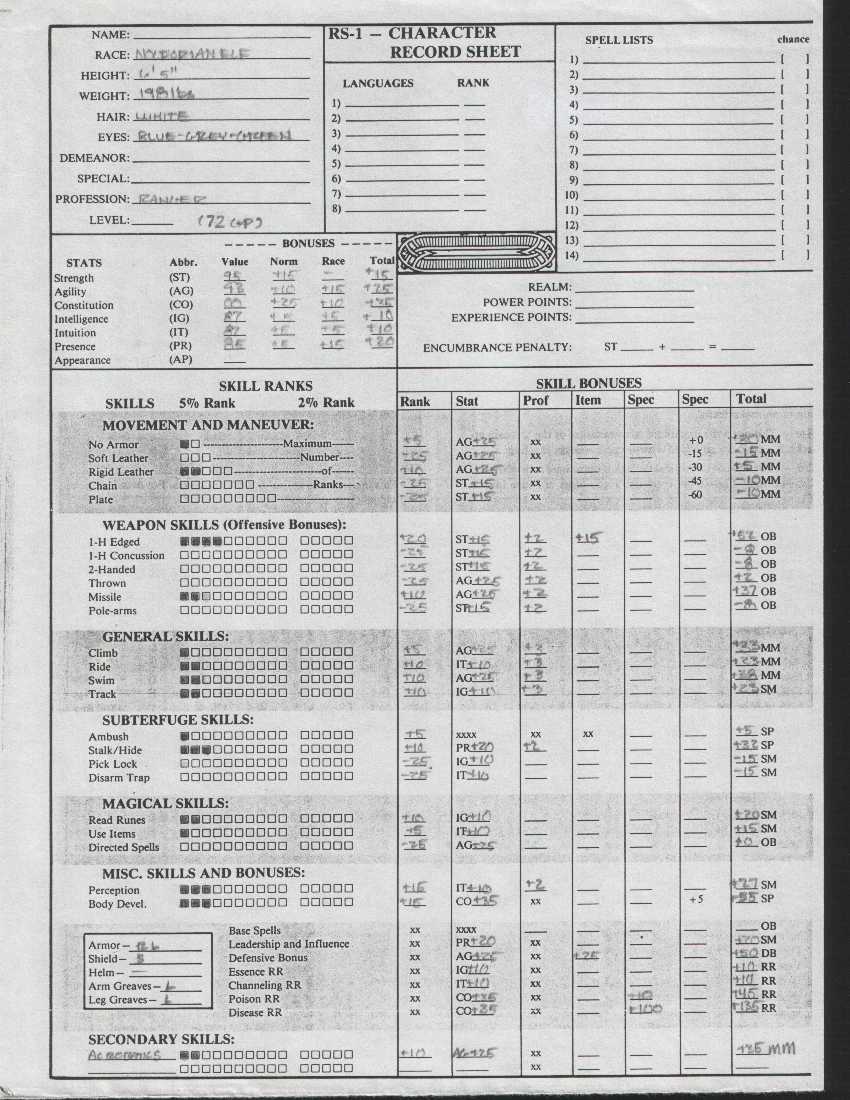 NAME:
RACE:
HEIGHT: 6'5"
WEIGHT: 198 lbs
HAIR: WHITE
EYES: BLUE-GREY-GREEN
DEMEANOR:
SPECIAL:
PROFESSION: RANGER
LEVEL: (72 GP)
RS-1 — CHARACTER
RECORD SHEET
LANGUAGES RANK
1)
2)
3)
4)
5)
6)
7)
8)
SPELL LISTS chance
1) [ ]
2) [ ]
3) [ ]
4) [ ]
5) [ ]
6) [ ]
7) [ ]
8) [ ]
9) [ ]
10) [ ]
11) [ ]
12) [ ]
13) [ ]
14) [ ]
----- BONUSES -----
STATS Abbr. Value Norm Race Total
Strength (ST) 95 +15 - +15
Agility (AG) +10 +15 +25
Constitution (CO) 00 +25 +10 +35
Intelligence (IG) 87 +5 +5 +10
Intuition (IT) 87 +5 +5 +10
Presence (PR) +5 +15 +20
Appearance (AP)
REALM:
POWER POINTS:
EXPERIENCE POINTS:
ENCUMBRANCE PENALTY: ST + =
SKILL RANKS
SKILLS 5% Rank 2% Rank
SKILL BONUSES
Rank Stat Prof Item Spec Spec Total
MOVEMENT AND MANEUVER:
No Armor Maximum +5 AG+25 xx +0 +30 MM
Soft Leather Number -25 AG+25 xx -15 -15 MM
Rigid Leather of +10 AG+25 xx -30 +5 MM
Chain Ranks -25 ST+15 xx -45 MM
Plate -25 ST+15 xx -60 MM
WEAPON SKILLS (Offensive Bonuses):
1-H Edged +20 ST+15 +2 +15 +52 OB
1-H Concussion -25 ST+15 +2 -8 OB
2-Handed -25 ST+15 +2 -8 OB
Thrown -25 AG+25 +2 +2 OB
Missile +10 AG+25 +2 +37 OB
Pole-arms -25 ST+15 +2 -8 OB
GENERAL SKILLS:
Climb +5 AG+25 +3 +33 MM
Ride +10 IT+10 +3 +23 MM
Swim +10 AG+25 +3 +38 MM
Track +10 IG+10 +3 +23 SM
SUBTERFUGE SKILLS:
Ambush +5 xxxx xx xx +5 SP
Stalk/Hide +10 PR+20 +2 +32 SP
Pick Lock -25 IG+10 -15 SM
Disarm Trap -25 IT+10 -15 SM
MAGICAL SKILLS:
Read Runes +10 IG+10 +20 SM
Use Items +5 IT+10 +15 SM
Directed Spells -25 AG+25 +0 OB
MISC. SKILLS AND BONUSES:
Perception +15 IT+10 +2 +27 SM
Body Devel. +15 CO+35 xx +5 +55 SP
Base Spells xx xxxx OB
Leadership and Influence xx PR+20 xx +20 SM
Defensive Bonus xx AG+25 xx +25 +50 DB
Essence RR xx IG+10 xx +10 RR
Channeling RR xx IT+10 xx +10 RR
Poison RR xx CO+35 xx +10 +45 RR
Disease RR xx CO+35 xx +100 +135 RR
Armor— RL
Shield— S
Helm— —
Arm Greaves— L
Leg Greaves— L
SECONDARY SKILLS:
ACROBATICS +10 AG+25 xx +35 MM
xx